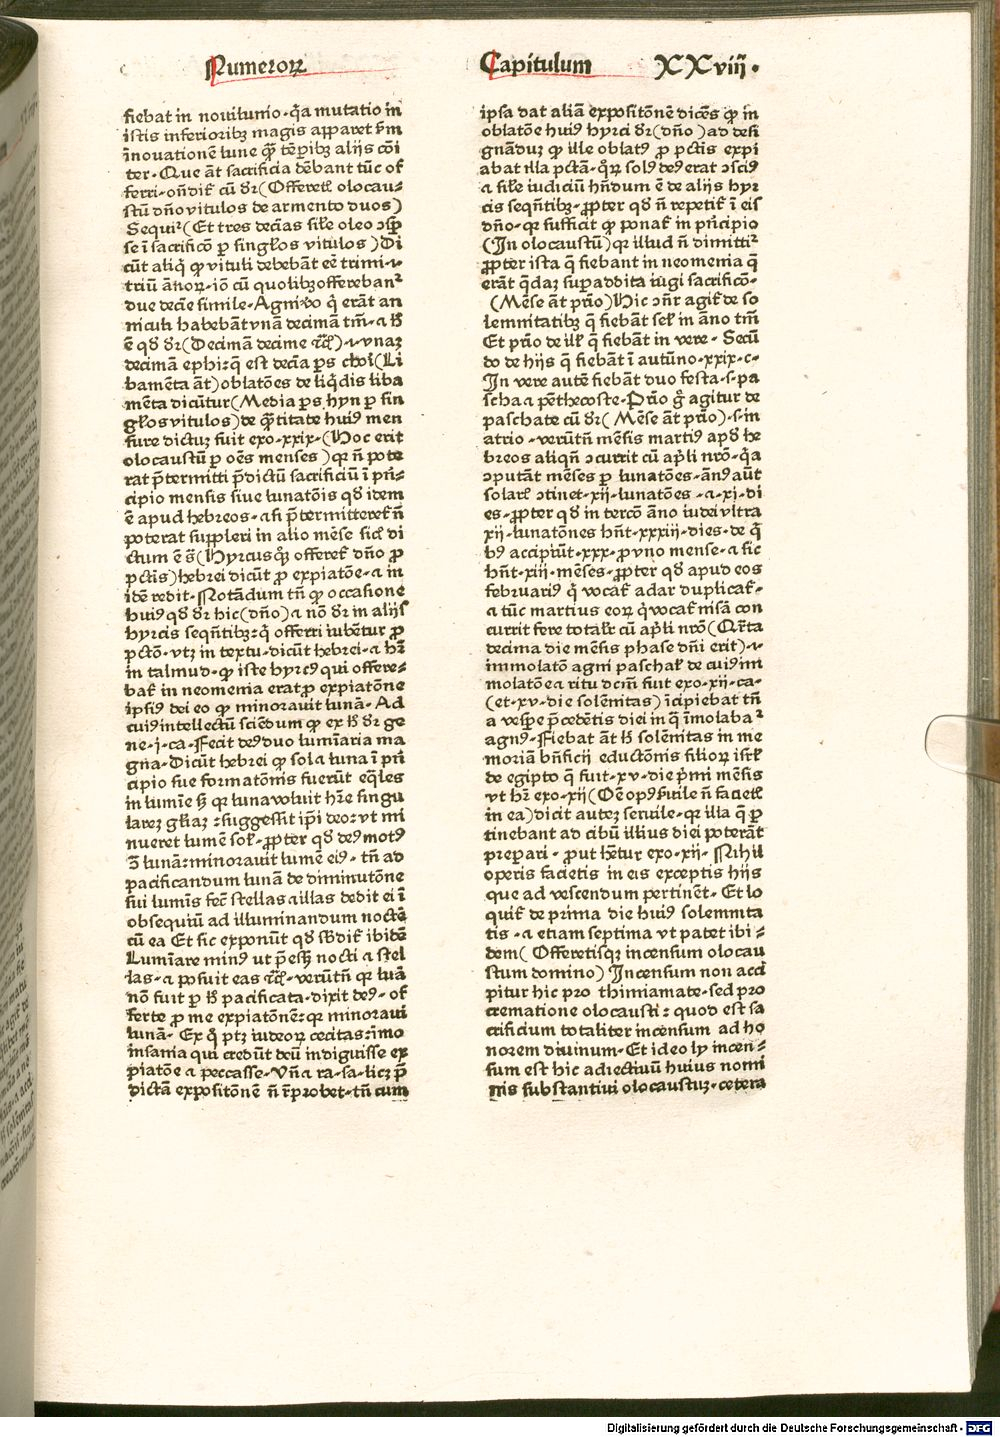 Numeroꝝ
Capitulum XXviij.
fiebat in nouilunio·q̃a mutatio in
istis inferioribꝫ magis apparet ẜm
ĩnouationẽ lune q̃ꝫ tẽp̱ibꝫ alijs cõi
ter·Que ãt sacrificia dẽbant tũc of
ferri·oñdit̃ cũ dr̃(Offeretẜ olocau⸗
stũ dño vitulos de armento duos)
Sequit᷑(Et tres decĩas sil̃e oleo ↄsp̱
se ĩ sacrificõ p̱ singlõs vitulos)Di
cũt aliq̃ ꝙ vituli debebãt eẽ trimi·⁊
triũ ãnoꝝ·iõ cũ quolibꝫ offereban᷑
due decĩe simile·Agni ꝟo q̃ erãt an
niculi habebãt vnã decimã tm̃·⁊ h̃
ẽ qď dr̃(Decimã decime ꝛc̃)·⁊ vnaꝫ
decimã ephi:q̃ est decĩa ps chori(Li
bamẽta ãt)oblatões de liq̃dis liba
mẽta dicũtur(Media ps hyn p̱ sin
glõs vitulos)de q̃titate huiꝰ men
sure dictuꝫ fuit exo·xxix·(Hoc erit
olocaustũ p̱ oẽs menses)qꝛ ñ pote
rat p̃termitti p̃dictũ sacrificiũ ĩ pñ⸗
cipio mensis siue lunatõis qď idem
ẽ apud hebreos·⁊ si p̃termitteret̃ ñ
poterat suppleri in alio mẽse sic̃ di
ctum ẽ s̃(Hyrcusqꝫ offeret̃ dño ꝓ
pctĩs)hebrei dicũt ꝓ expiatõe·⁊ in
idẽ redit·Notãdum tñ ꝙ occasione
huiꝰ qď dr̃ hic(dño)⁊ nõ dr̃ in alijs
hyrcis seqñtibꝫ:q̃ offerri iubẽtur ꝓ
pctõ·vtꝫ in textu·dicũt hebrei·⁊ hr̃
in talmud·ꝙ iste hyrcꝰ qui offere⸗
bat̃ in neomenia erat ꝓ expiatõne
ipsiꝰ dei eo ꝙ minorauit lunã·Ad
cuiꝰ intellectũ sciẽdum ꝙ ex h̃ dr̃ ge
ne·j·ca·Fecit deꝰ duo lumĩaria ma
gna·Dicũt hebrei ꝙ sol ⁊ luna ĩ pñ
cipio sue formatõnis fuerũt eq̃les
in lumĩe sꝫ qꝛ luna voluit hr̃e singu
lareꝫ gl̃iaꝫ:suggessit ip̃i deo:vt mi
nueret lumẽ sol̃·ꝓpter qď deꝰ motꝰ
ꝯ̃ lunã:minorauit lumẽ eiꝰ·tñ ad
pacificandum lunã de diminutõne
sui lumĩs fec̃ stellas ⁊ illas dedit ei ĩ
obsequiũ ad illuminandum noctẽ
cũ ea Et sic exponũt qď sb̃dit̃ ibidẽ
Lumĩare minꝰ vt p̃esꝫ nocti ⁊ stel
las·⁊ posuit eas ꝛc̃·verũtñ qꝛ luã
nõ fuit p̱ h̃ pacificata·dixit deꝰ·of
ferte ꝓ me expiatõnẽ:qꝛ minoraui
lunã·Ex q̃ ptꝫ iudeoꝝ cecitas:ĩmo
insania qui credũt deũ indiguisse ex
piatõe ⁊ peccasse·Vñ ⁊ ra·sa·licꝫ p̃
dictã expositõnẽ ñ r̃probet·tñ cum
ipsa dat aliã expositõnẽ dicẽs ꝙ in
oblatõe huiꝰ hyrci dr̃(dño)ad desi
gnãduꝫ ꝙ ille oblatꝰ ꝓ pctĩs expi
abat illa pctã·qꝝ solꝰ deꝰ erat ↄsciꝰ
⁊ sil̃e iudiciũ hñdum ẽ de alijs hyr
cis seqñtibꝫ·ꝓpter qď ñ repetit̃ ĩ eis
dño·qꝛ sufficit ꝙ ponat̃ in pñcipio
(In olocaustũ)qꝛ illud ñ dimittit᷑
ꝓpter ista q̃ fiebant in neomenia q̃
erãt q̃daꝫ sup̱addita iugi sacrificõ·
(Mẽse ãt pr̃io)Hic ↄñr agit̃ de so
lemnitatibꝫ q̃ fiebãt sel̃ in ãno tm̃
Et pr̃io de il̃ q̃ fiebãt in vere·Secũ
do de hijs q̃ fiebãt ĩ autũno·xxix·c·
In vere autẽ fiebãt duo festa·s·pa
scha ⁊ pẽthecoste·Pr̃io g̃ agitur de
paschate cũ dr̃(Mẽse ãt pr̃io)·s·in
atrio·verũtñ mẽsis martiꝰ apď he
breos aliqñ ↄcurrit cũ apl̃i nr̃o·q̃a
ↄputãt mẽses p̱ lunatões·ãnꝰ aũt
solarẜ ↄtinet·xij·lunatões·⁊·xj·di
es·ꝓpter qď in tercõ ãno iudei vltra
xij·lunatões hñt·xxxiij·dies·de q̃
bꝰ accipiũt·xxx·ꝓ vno mense·⁊ sic
hñt·xiij·mẽses·ꝓpter qď apud eos
februariꝰ q̃ vocat̃ adar duplicat̃·
⁊ tũc martius eoꝝ q̃ vocat̃ nisã con
currit fere totalr̃ cũ apl̃i nr̃o(Qr̃ta
decima die mẽsis phase dñi erit)·⁊
immolatõ agni paschal̃ de cuiꝰ im
molatõe ⁊ ritu dcm̃ fuit exo·xij·ca·
(et·xv·die solẽnitas)ĩcipiebat tñ
a vesp̱e p̃cedẽtis diei in q̃ ĩmolabat᷑
agnꝰ·Fiebat ãt h̃ solẽnitas in me
moriã bñficij eductõnis filioꝝ isrl̃
de egipto q̃ fuit·xv·die p̃mi mẽsis
vt hr̃ exo·xij(Oẽ opꝰ ẜuile ñ facietẜ
in ea)dicit auteꝫ seruile·qꝛ illa q̃ p̱
tinebant ad cibũ illius diei poterãt
prep̱ari·ꝓut hẽtur exo·xij·Nihil
operis facietis in eis exceptis hijs
que ad vescendum pertinẽt·Et lo
quit̃ de prima die huiꝰ solemnita
tis·⁊ etiam septima vt patet ibi⸗
dem(Offeretisqꝫ incensum olocau
stum domino)Incensum non acci
pitur hic pro thimiamate·sed pro
crematione olocausti:quod est sa
crificium totaliter incensum ad ho
norem diuinum·Et ideo ly incen⸗
sum est hic adiectiuũ huius nomi
nis substantiui olocaustuꝫ·cetera
Digitalisierung gefördert durch die Deutsche Forschungsgemeinschaft - DFG